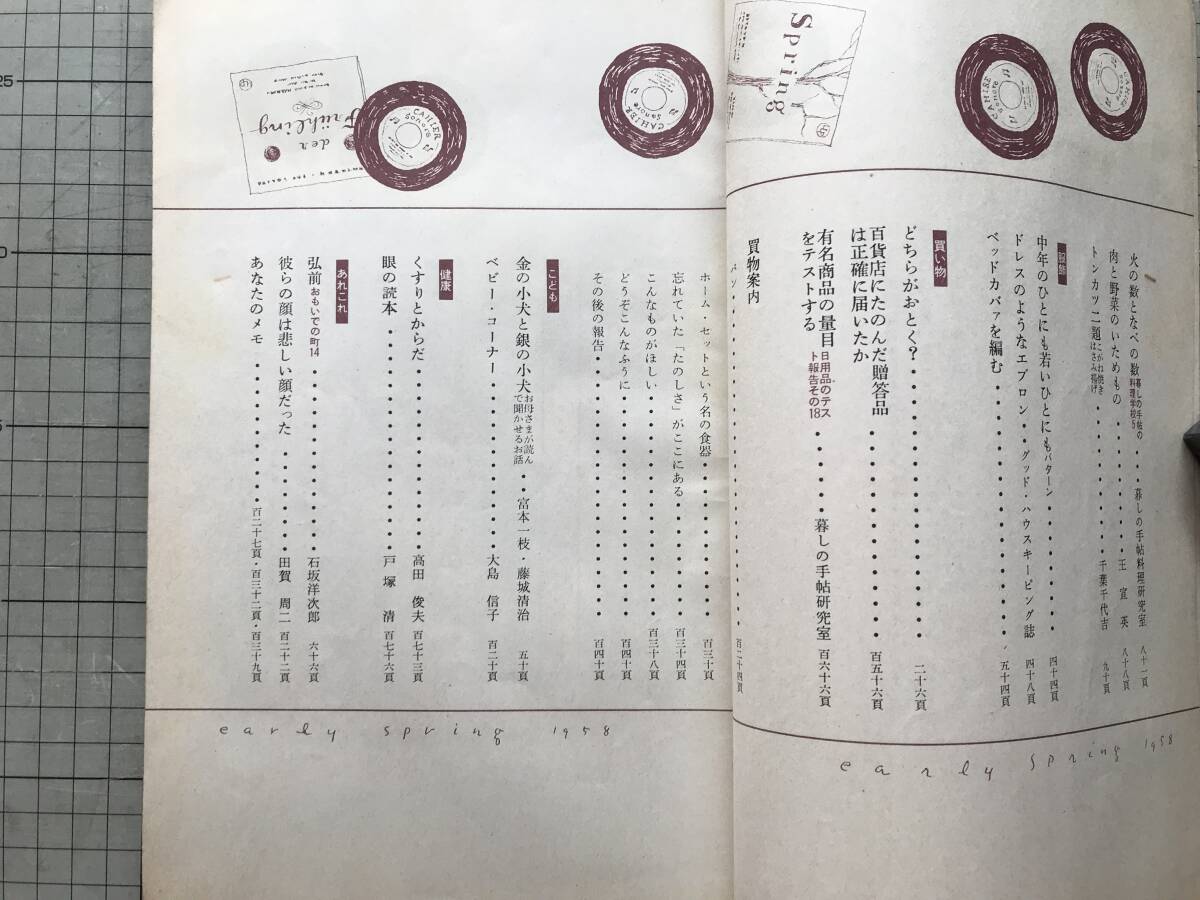 Spring
CAHIER
Sonore
CAHIER
Sonore
CAHIER
Sonore
CAHIER
Sonore
der
Frühling
火の数となべの数 暮しの手帖の料理学校5 ・・・暮しの手帖料理研究室 八十一頁
肉と野菜のいためもの・・・・・・・王 宜英 八十八頁
トンカツ二題 こがね焼き はさみ揚げ・・・・・・・千葉千代吉 九十頁
服飾
中年のひとにも若いひとにも パターン・・・・・・・四十四頁
ドレスのようなエプロン・・グッド・ハウスキーピング誌 四十八頁
ベッドカバァを編む・・・・・・・五十四頁
買い物
どちらがおとく?・・・・・・・二十六頁
百貨店にたのんだ贈答品
は正確に届いたか・・・・・・・百五十六頁
有名商品の量目
をテストする 日用品のテスト報告その18・・・・・暮しの手帖研究室 百六十六頁
買物案内
ベッ・・・・・・・百二十四頁
ホーム・セットという名の食器・・・・・・・百三十頁
忘れていた「たのしさ」がここにある・・・・・・・百三十四頁
こんなものがほしい・・・・・・・百三十八頁
どうぞこんなふうに・・・・・・・百四十頁
その後の報告・・・・・・・百四十頁
こども
金の小犬と銀の小犬 お母さまが読んで聞かせるお話・・宮本一枝・藤城清治 五十頁
ベビー・コーナー・・・・・・・大島 信子 百二十頁
健康
くすりとからだ・・・・・・・高田 俊夫 百七十三頁
眼の読本・・・・・・・戸塚 清 百七十六頁
あれこれ
弘前 おもいでの町14・・・・・・・石坂洋次郎 六十六頁
彼らの顔は悲しい顔だった・・・・・・・田賀 周二 百二十二頁
あなたのメモ・・・・・・・百二十七頁・百三十二頁・百三十九頁
early spring 1958
early spring 1958
25